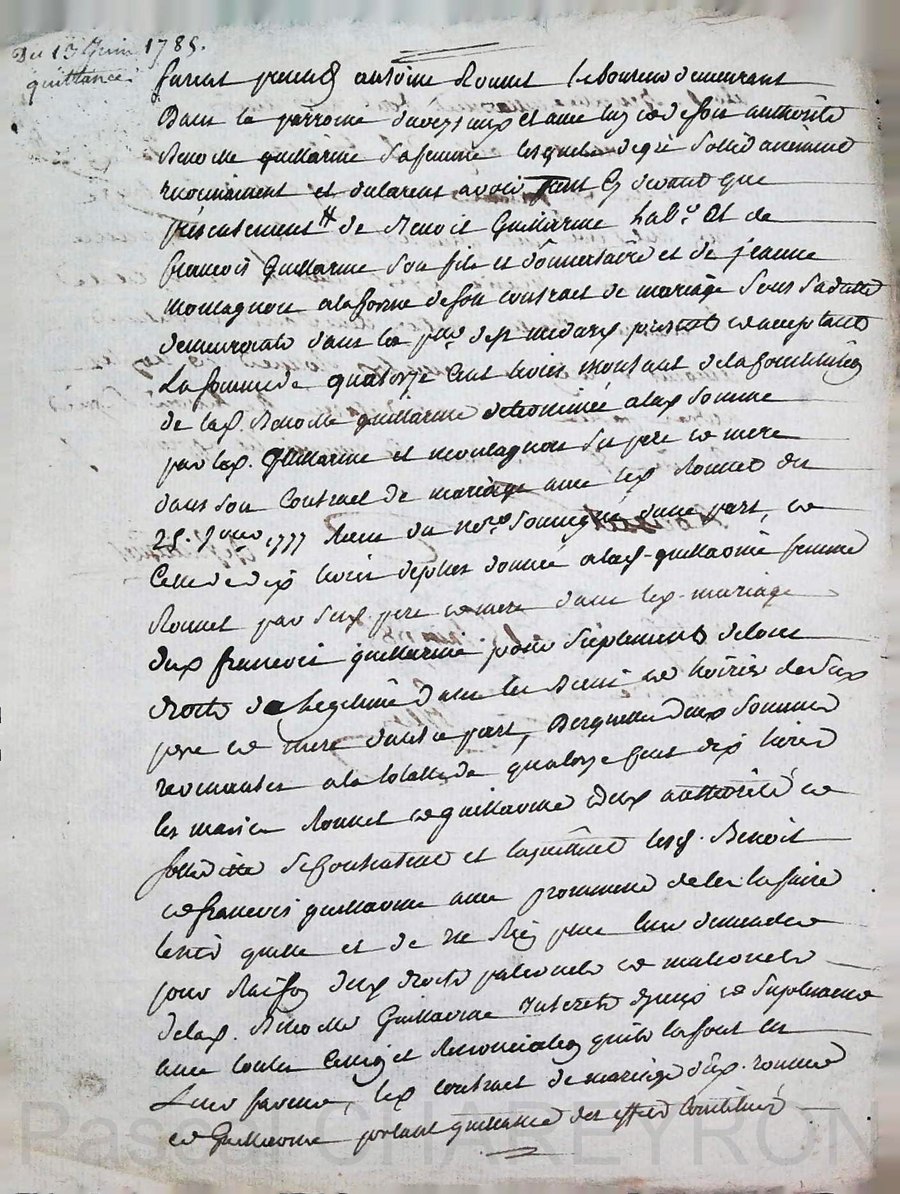 Du 13 Juin 1785.
quittance
furent presents antoine Ronnet laboureur demeurant
Dans la parroisse et avec luy et de son authorité
Benoitte guillarme sa femme lesquels de gré solidairement
reconnoissent et déclarent avoir que
présentement # de Benoit Guillarme lab.r et de
francois Guillarme son fils et donnataire et de jeanne
montagnon a la forme de son contrat de mariage sous sa datte
demeurants dans la de st medard presents et acceptants
La somme de quatorze cent livres montant de la constitution
de lad. Benoitte guillarme a lad. somme
par led. Guillarme et montagnon ses pere et mere
dans son contrat de mariage avec led. Ronnet du
25. 1777 Recu du no.re soussigné d'une part, et
Celle de dix livres de plus donnée a lad. guillarme femme
Ronnet par sesd. pere et mere dans led. mariage
dud. francois guillarme pour suplement de tous
droits de Legitime dans les Biens et hoirie de sesd.
pere et mere d'autre part, Desquelles deux sommes
revenantes a la totalle de quatorze cent dix livres
les mariés Ronnet et guillarme authorité et
solidité se contentent et lesd. Benoit
et francois guillarme avec promesse de les en faire
tenir quitte et de ne Rien plus leur demander
pour Raison desd. droits paternels et maternels
de lad. Benoitte Guillarme Interets d'yceux et suplement
avec toutes Cession et Renonciation qu'ils en font en
Leur faveur, led. contrat de mariage desd. ronnet
et Guillarme portant quittance des effets constitués
Pascal CHAREYRON